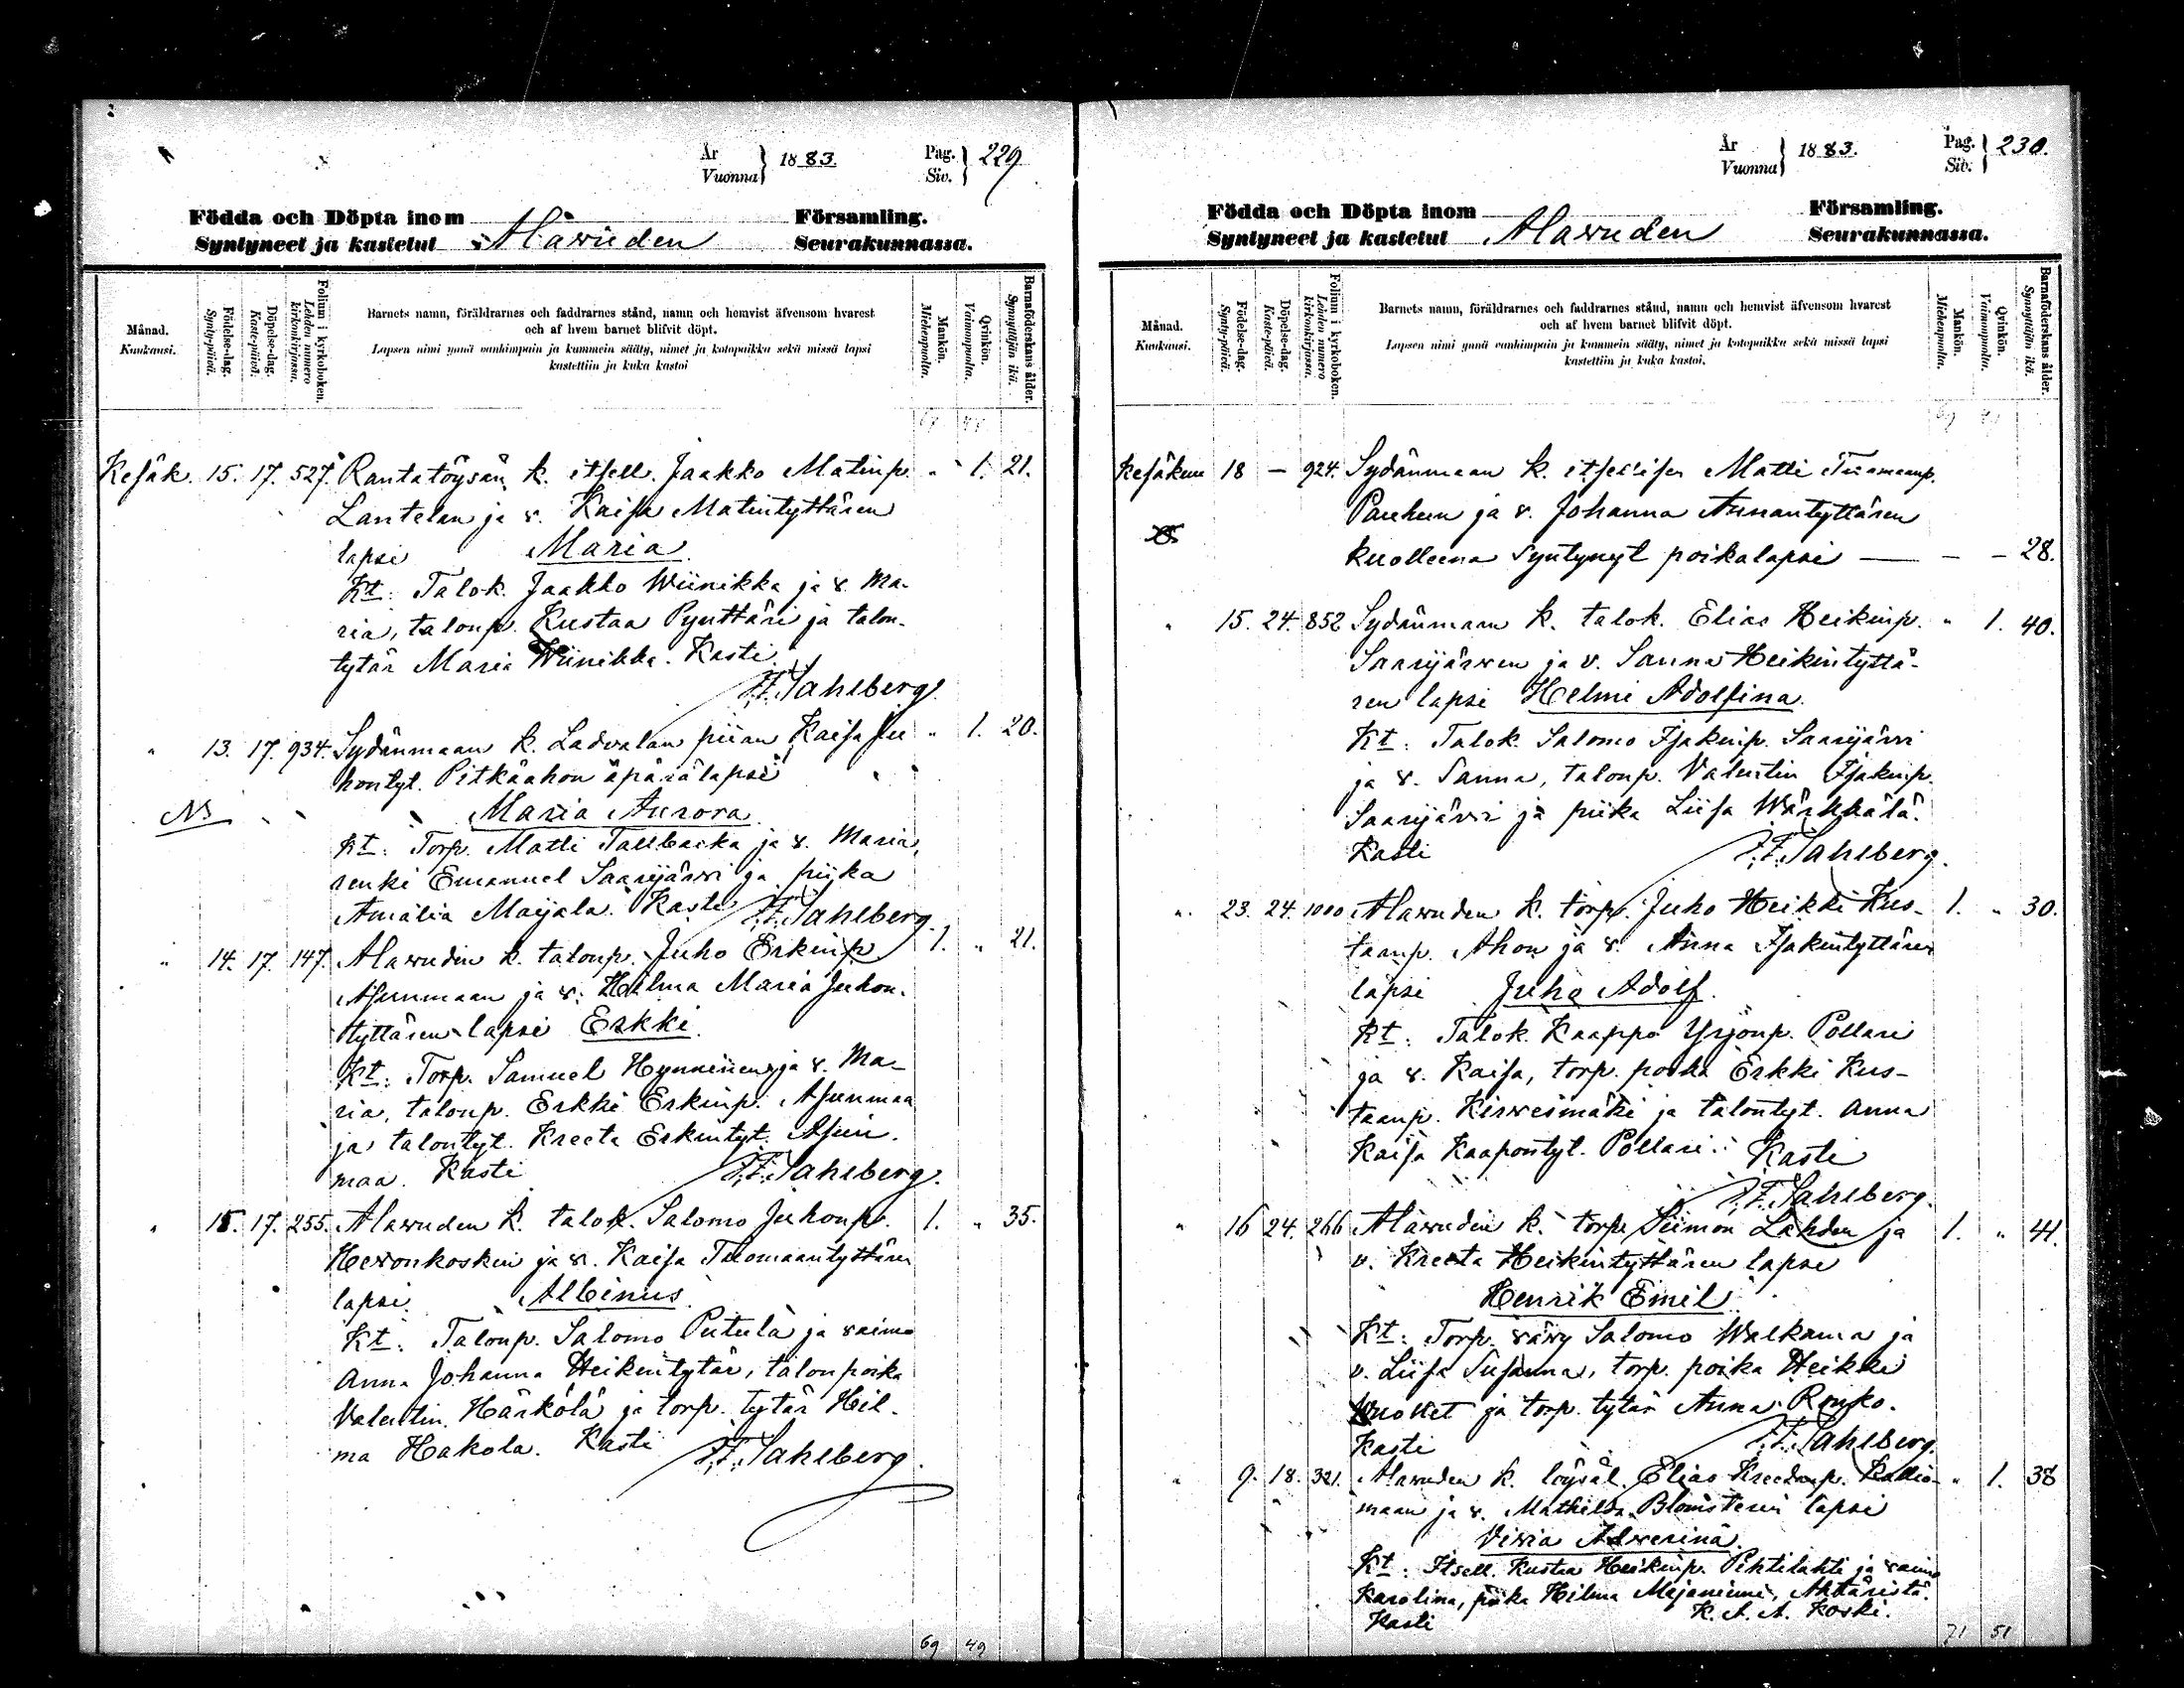 År
Vuonna } 1883. Pag.
Siv. } 229
Födda och Döpta inom Församling.
Syntyneet ja kastetut Alawuden Seurakunnassa.
Månad.
Kuukausi.
Födelse-dag.
Synty-päivä.
Döpelse-dag.
Kaste-päivä.
Folium i kyrkoboken.
Lehden numero kirkonkirjassa.
Barnets namn, föräldrarnes och faddrarnes stånd, namn och hemvist äfvensom hvarest
och af hvem barnet blifvit döpt.
Lapsen nimi ynnä vanhimpain ja kummein sääty, nimet ja kotopaikka sekä missä lapsi
kastettiin ja kuka kastoi
Mankön.
Miehenpuolta.
Qvinkön.
Vaimonpuolta.
Barnaföderskans ålder.
Synnyttäjän ikä.
Kesäk. 15. 17. 527. Rantatöysän k. itsell. Jaakko Matinp. " 1. 21.
Lantelan ja v. Kaisa Matintyttären
lapsi Maria
Kt: Talok. Jaakko Wiinikka ja v. Ma-
ria, talonp. Kustaa Pynttäri ja talon-
tytär Maria Wiinikka. Kasti
F. F. Sahlberg.
" 13. 17. 934. Sydänmaan k. Ladvalan piian Kaisa Ju " 1. 20.
hontyt. Pitkäahon äpärälapsi
NB Maria Aurora
Kt: Torp. Matti Tallbacka ja v. Maria,
renki Emanuel Saarijärvi ja piika
Amalia Maijala. Kasti F. F. Sahlberg.
" 14. 17. 147. Alawuden k. talonp. Juho Erkinp. 1. " 21.
Asunmaan ja v. Hilma Maria Juhon-
tyttären lapsi Erkki.
Kt: Torp. Samuel Hynninen ja v. Ma-
ria, talonp. Erkki Erkinp. Asunmaa
ja talontyt. Kreeta Erkintyt. Asun-
maa. Kasti F. F. Sahlberg.
" 15. 17. 255. Alawuden k. talok. Salomo Juhonp. 1. " 35.
Hewonkosken ja v. Kaisa Tuomaantyttären
lapsi Albinus
Kt: Talonp. Salomo Putula ja vaimo
Anna Johanna Heikintytär, talonpoika
Valentin Härkölä ja torp. tytär Hil-
ma Hakola. Kasti F. F. Sahlberg.
69 49
År
Vuonna } 1883. Pag.
Siv. } 230.
Födda och Döpta inom Församling.
Syntyneet ja kastetut Alawuden Seurakunnassa.
Månad.
Kuukausi.
Födelse-dag.
Synty-päivä.
Döpelse-dag.
Kaste-päivä.
Folium i kyrkoboken.
Lehden numero kirkonkirjassa.
Barnets namn, föräldrarnes och faddrarnes stånd, namn och hemvist äfvensom hvarest
och af hvem barnet blifvit döpt.
Lapsen nimi ynnä vanhimpain ja kummein sääty, nimet ja kotopaikka sekä missä lapsi
kastettiin ja kuka kastoi.
Mankön.
Miehenpuolta.
Qvinkön.
Vaimonpuolta.
Barnaföderskans ålder.
Synnyttäjän ikä.
69 49
Kesäkuu 18 — 924. Sydänmaan k. itsellisen Matti Tuomaanp.
ja v. Johanna Annantyttären
kuolleena syntynyt poikalapsi — — — 28.
" 15. 24. 852 Sydänmaan k. talok. Elias Heikinp. " 1. 40.
Saarijärven ja v. Sanna Heikintyttä-
ren lapsi Helmi Adolfina.
Kt: Talok. Salomo Isakinp. Saarijärvi
ja v. Sanna, talonp. Valentin Isakinp.
Saarijärvi ja piika Liisa Wärkkälä.
Kasti F. F. Sahlberg.
" 23. 24. 1000 Alawuden k. torp. Juho Heikki Kus- 1. " 30.
taanp. Ahon ja v. Anna Isakintyttären
lapsi Juho Adolf.
Kt: Talok. Kaappo Yrjönp. Pollari
ja v. Kaisa, torp. poika Erkki Kus-
taanp. Kirwesmäki ja talontyt. Anna
Kaisa Kaapontyt. Pollari. Kasti
F. F. Sahlberg.
" 16 24. 266 Alawuden k. torp. Siimon Lahden ja 1. " 41.
v. Kreeta Heikintyttären lapsi
Henrik Emil
Kt: Torp. vävy Salomo Walkama ja
v. Liisa Susanna, torp. poika Heikki
ja torp. tytär Anna Rouko.
Kasti F. F. Sahlberg.
" 9. 18. 321. Alawuden k. löysäl. Elias Kallio- " 1. 38
maan ja v. Mathilda Blomsterin lapsi
Viria Adwerina.
Kt: Itsell. Kustaa Heikinp. Pihtilahti ja vaimo
Karolina, piika Hilma Majaniemi, Ähtäristä.
Kasti K. A. A. Koski.
71 51